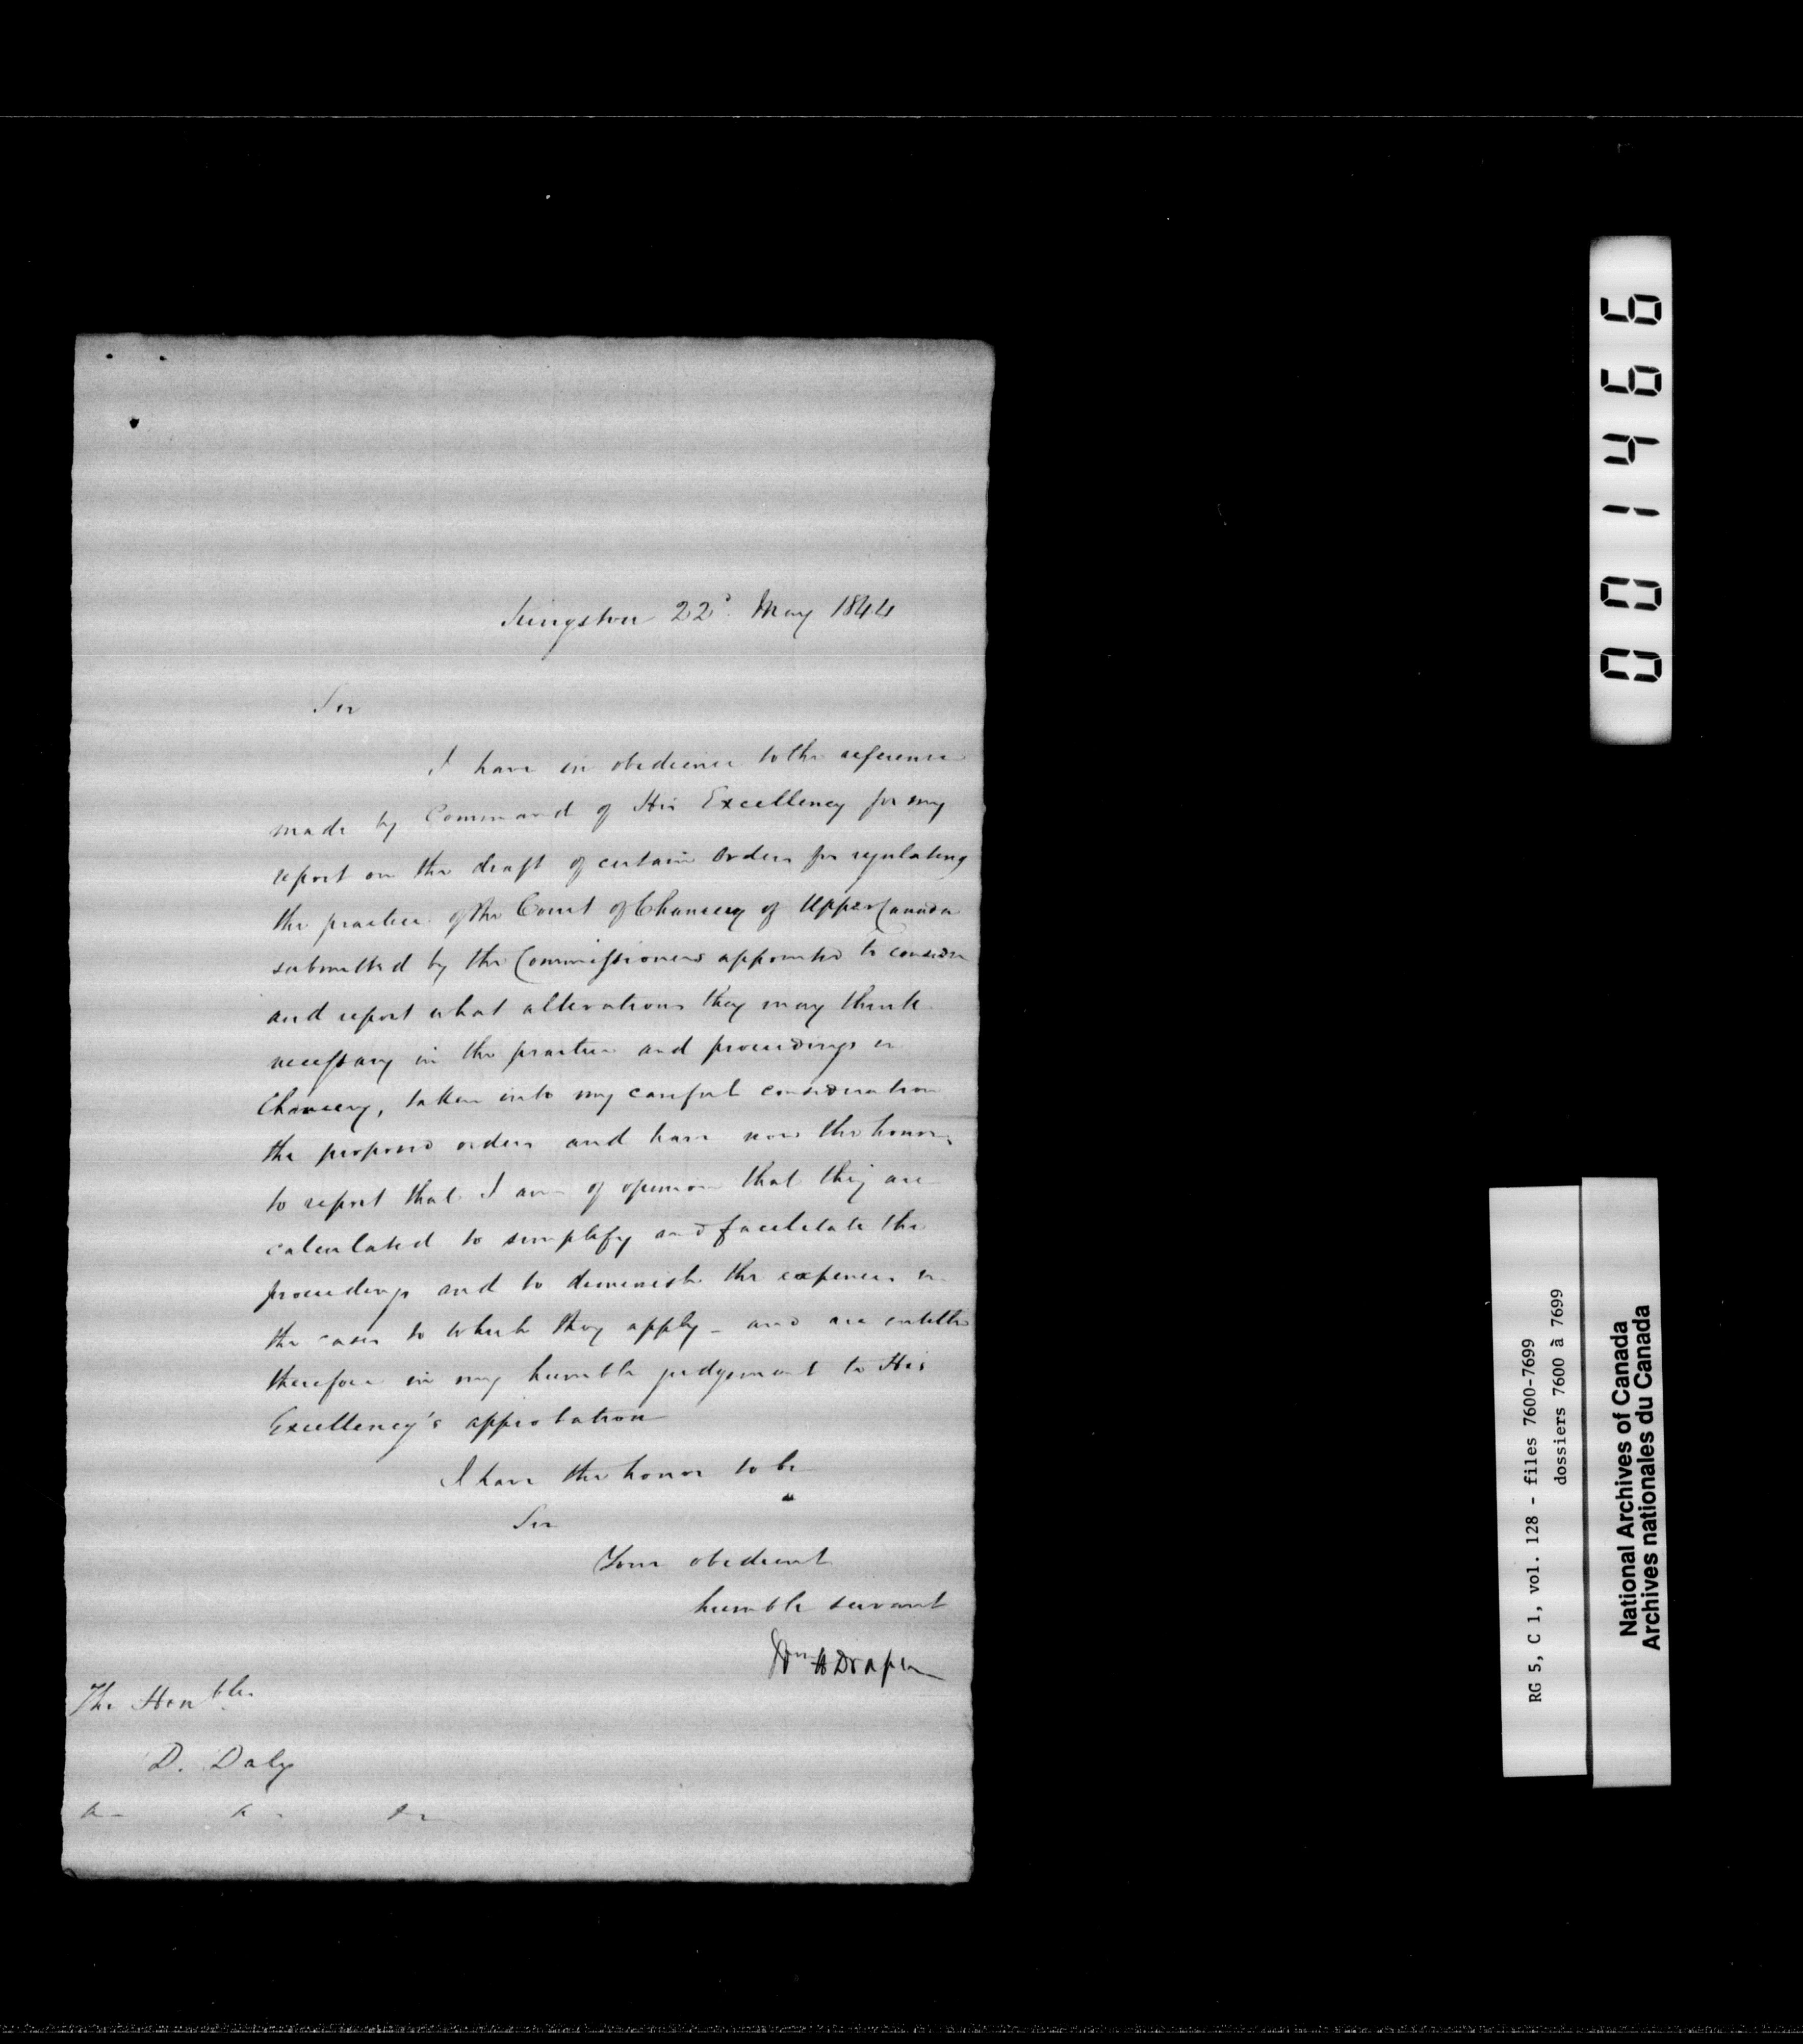 Kingston 22d. May 1844
Sir
I have in obedience to the reference
made by Command of His Excellency for my
report on the draft of certain Orders for regulating
the practice of the Court of Chancery of Upper Canada
submitted by the Commissioners appointed to consider
and report what alterations they may think
necessary in the practice and proceedings in
Chancery, taken into my careful consideration
the proposed orders and have now the honor,
to report that I am of opinion that they are
calculated to simplify and facilitate the
proceedings and to diminish the expences in
the cases to which they apply - and are entitled
therefore in my humble judgement to His
Excellency's approbation
I have the honor to be
Sir
Your obedient
humble servant
Wm H Draper
The Honble
D. Daly
&c &c &c
001466
RG 5, C 1, vol. 128 - files 7600-7699
dossiers 7600 à 7699
National Archives of Canada
Archives nationales du Canada